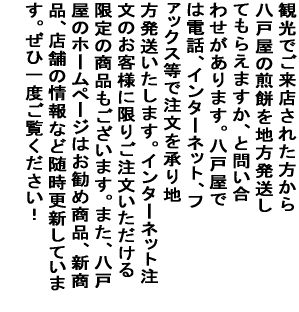 観光でご来店された方から
八戸屋の煎餅を地方発送し
てもらえますか、と問い合
わせがあります。八戸屋で
は電話、インターネット、フ
ァックス等で注文を承り地
方発送いたします。インターネット注
文のお客様に限りご注文いただける
限定の商品もございます。また、八戸
屋のホームページはお勧め商品、新商
品、店舗の情報など随時更新していま
す。ぜひ一度ご覧ください！